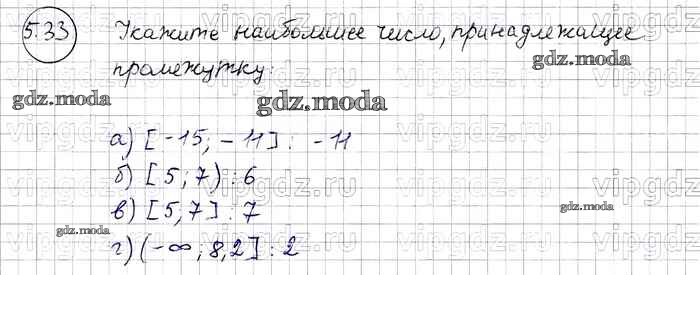 5.33 Укажите наибольшее число, принадлежащее
промежутку:
gdz.moda
gdz.moda
gdz.moda
а) [-15; -11] : -11
б) [5; 7) : 6
gdz.moda
в) [5,7] : 7
gdz.moda
gdz.moda
г) (-∞; 8,2] : 2
vipgdz